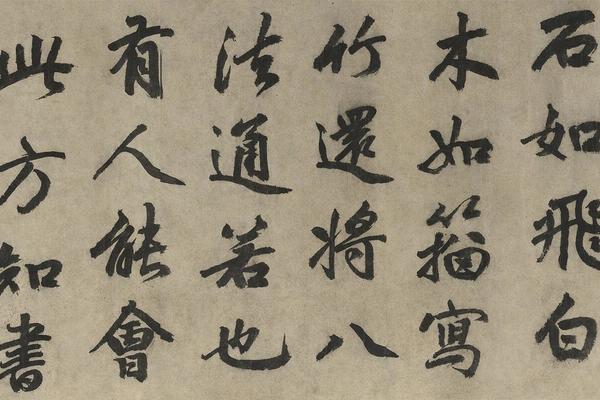 石如飛白
木如籀寫
竹還將八
法通若也
有人能會
此方知書